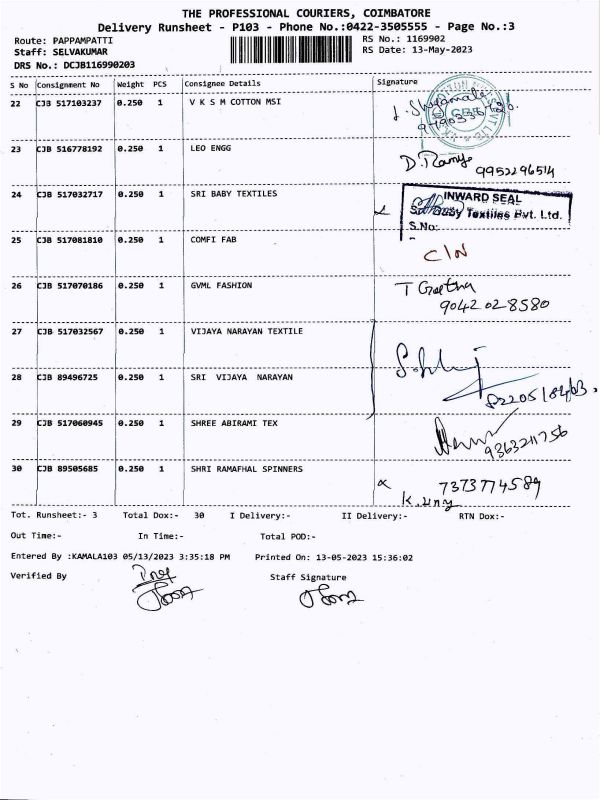 THE PROFESSIONAL COURIERS, COIMBATORE
Delivery Runsheet - P103 - Phone No.:0422-3505555 - Page No.:3
Route: PAPPAMPATTI RS No.: 1169902
Staff: SELVAKUMAR RS Date: 13-May-2023
DRS No.: DCJB116990203
S No Consignment No Weight PCS Consignee Details Signature
22 CJB 517103237 0.250 1 V K S M COTTON MSI
23 CJB 516778192 0.250 1 LEO ENGG D. Ramy 9952296514
24 CJB 517032717 0.250 1 SRI BABY TEXTILES INWARD SEAL
Baby Textiles Pvt. Ltd.
S.No:
25 CJB 517081810 0.250 1 COMFI FAB C/N
26 CJB 517070186 0.250 1 GVML FASHION T Geetha
9042028580
27 CJB 517032567 0.250 1 VIJAYA NARAYAN TEXTILE
28 CJB 89496725 0.250 1 SRI VIJAYA NARAYAN
29 CJB 517060945 0.250 1 SHREE ABIRAMI TEX 9363211756
30 CJB 89505685 0.250 1 SHRI RAMAFHAL SPINNERS 7373774589
Tot. Runsheet:- 3 Total Dox:- 30 I Delivery:- II Delivery:- RTN Dox:-
Out Time:- In Time:- Total POD:-
Entered By :KAMALA103 05/13/2023 3:35:18 PM Printed On: 13-05-2023 15:36:02
Verified By Staff Signature